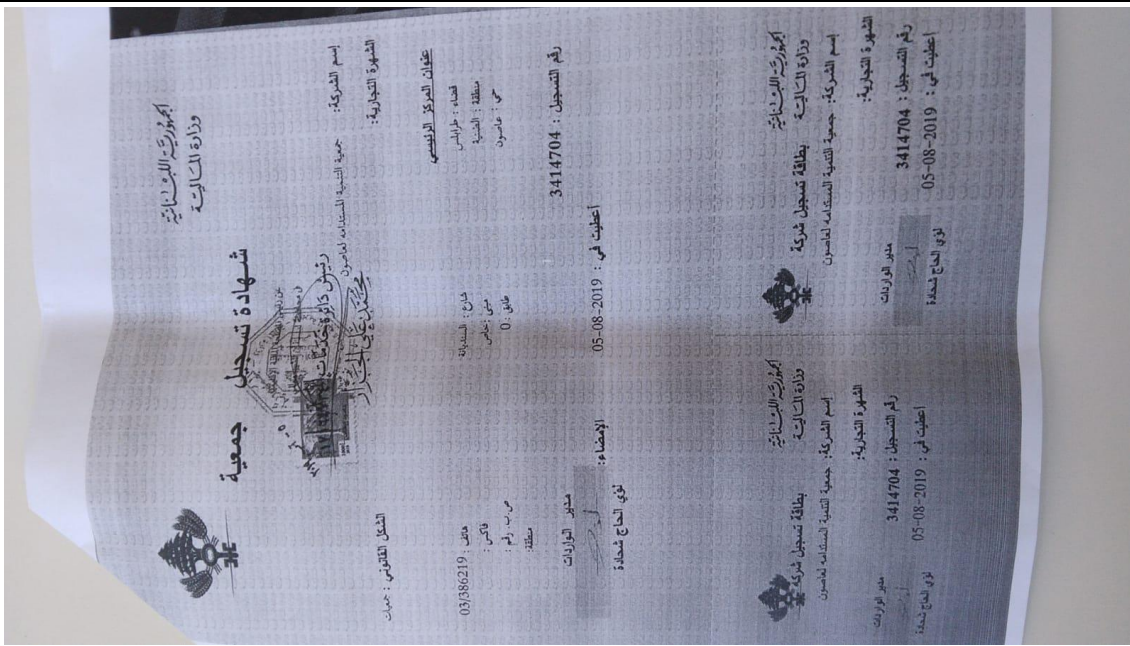 الجمهورية اللبنانية
وزارة المالية
شهادة تسجيل جمعية
إسم الشركة: جمعية التنمية المستدامه لعاصون
الشهرة التجارية:
رئيس دائرة خدمات
محمد علي الجزار
الشكل القانوني : جمعيات
عنوان المركز الرئيسي
قضاء : طرابلس
منطقة : الضنية
حي : عاصون
شارع : السنديانة
مبنى : خاص
طابق : 0
هاتف : 03/386219
فاكس :
ص.ب. رقم :
منطقة:
رقم التسجيل : 3414704
أعطيت في : 05-08-2019
الإمضاء:
مدير الواردات
لؤي الحاج شحادة
الجمهورية اللبنانية
وزارة المالية
بطاقة تسجيل شركة
إسم الشركة: جمعية التنمية المستدامه لعاصون
الشهرة التجارية:
رقم التسجيل : 3414704
أعطيت في : 05-08-2019
مدير الواردات
لؤي الحاج شحادة
الجمهورية اللبنانية
وزارة المالية
بطاقة تسجيل شركة
إسم الشركة: جمعية التنمية المستدامه لعاصون
الشهرة التجارية:
رقم التسجيل : 3414704
أعطيت في : 05-08-2019
مدير الواردات
لؤي الحاج شحادة